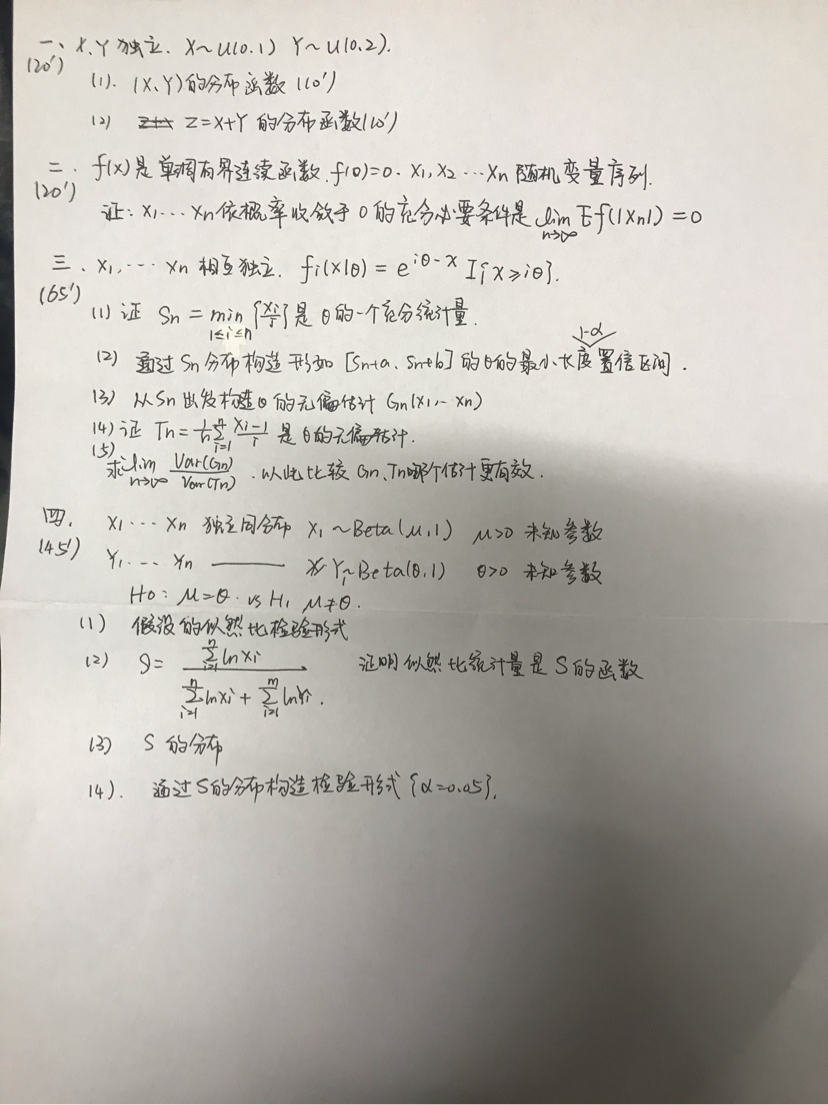 一、X、Y 独立. X~U(0.1) Y~U(0.2).
(20')
(1). (X、Y)的分布函数(10')
(2) Z=X+Y 的分布函数(10')
二. f(x)是单调有界连续函数. f(0)=0. X1,X2 ⋯ Xn 随机变量序列.
(20')
证: X1⋯Xn依概率收敛于 0 的充分必要条件是 lim n→∞ Ef(|Xn|) = 0
三. X1,⋯ Xn 相互独立. fi(x|θ) = e^{iθ-x} I{x≥iθ}.
(65')
(1) 证 Sn = min 1≤i≤n {Xi/i} 是 θ的一个充分统计量.
(2) 通过 Sn 分布构造 形如 [Sn+a、Sn+b] 的θ的最小长度 1-α 置信区间.
(3) 从Sn出发构造θ的无偏估计 Gn(X1,⋯Xn)
(4) 证 Tn = 1/n Σ_{i=1}^{n} (Xi-1)/i 是 θ的无偏估计.
(5) 求 lim n→∞ Var(Gn)/Var(Tn) . 以此比较 Gn、Tn哪个估计更有效.
四. X1⋯Xn 独立同分布 X1~Beta(μ,1) μ>0 未知参数
(45')
Y1.⋯ Yn —— Y1~Beta(θ.1) θ>0 未知参数
H0: μ=θ. vs H1 μ≠θ.
(1) 假设的似然比检验形式
(2) S= Σ_{i=1}^{n} lnXi / (Σ_{i=1}^{n} lnXi + Σ_{i=1}^{m} lnYi). 证明似然比统计量是 S的函数
(3) S 的分布
(4). 通过S的分布构造检验形式{α=0.05}.